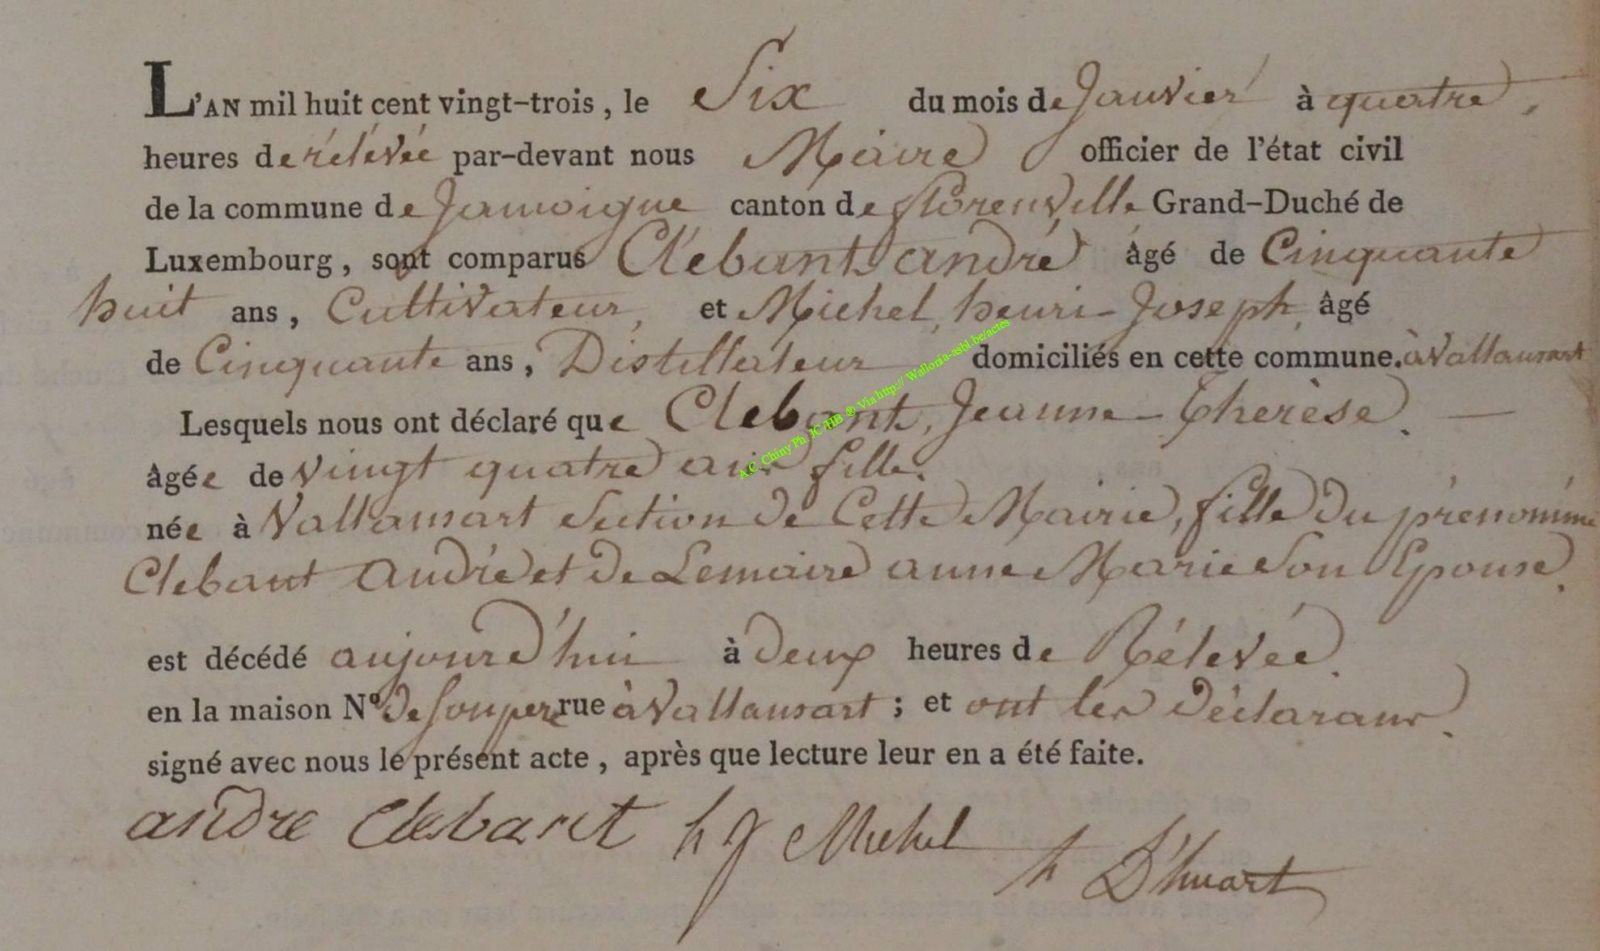 L'AN mil huit cent vingt-trois, le Six du mois de Janvier à quatre,
heures de rélévée par-devant nous Maire officier de l'état civil
de la commune de Jamoigne canton de florenville Grand-Duché de
Luxembourg, sont comparus Clébant andré âgé de Cinquante
huit ans, Cultivateur, et Michel, henri-Joseph, âgé
de Cinquante ans, Distillateur domiciliés en cette commune. à Vallansart
Lesquels nous ont déclaré que Clebant, Jeanne-Therèse.
A.C. Chiny Ph. JC HB © Via http:// Wallonia-asbl.be/actes
âgée de vingt quatre ans fille.
née à Vallansart Section de Cette Mairie, fille du prénommé
Clebant André et de Lemaire anne Marie Son Epouse.
est décédé aujourd'hui à deux heures de Rélevée.
en la maison No de Son pere rue à Vallansart ; et ont les déclarans.
signé avec nous le présent acte, après que lecture leur en a été faite.
andre Clebant h J Michel
h D'huart